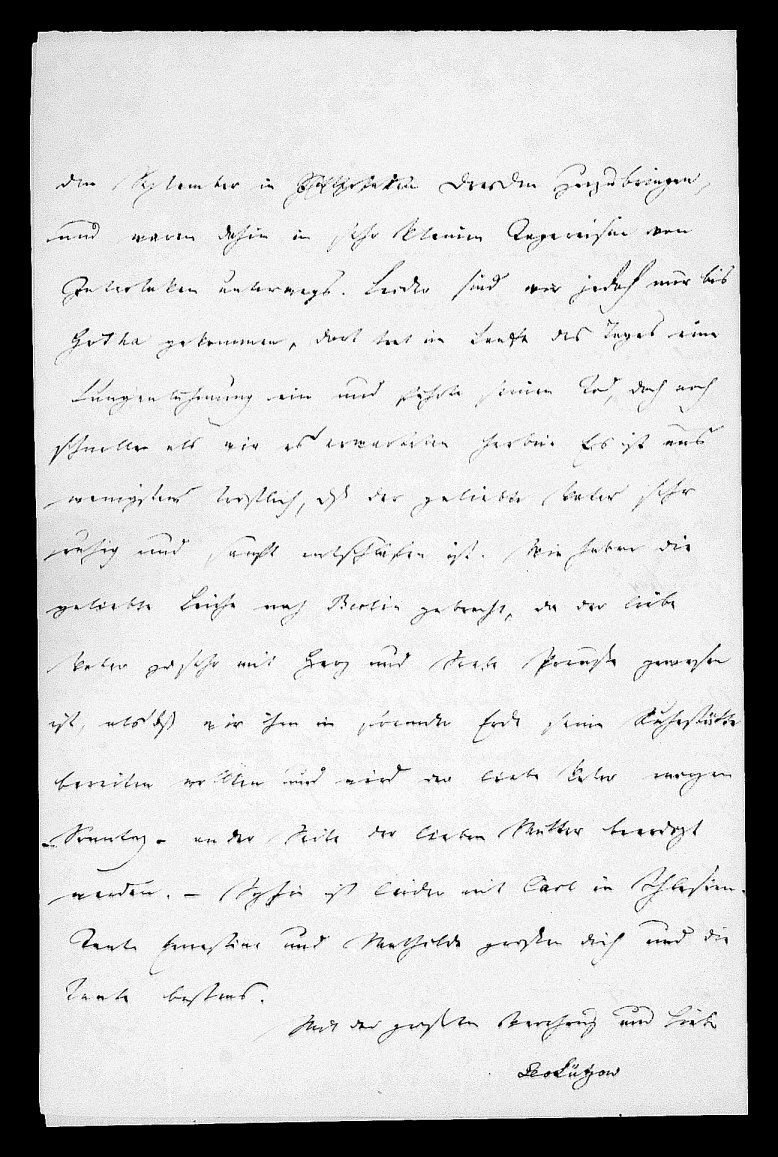 den September in Dresden zuzubringen,
und waren dahin in sehr kleinen Tagereisen von
Interlaken unterwegs. Leider sind wir jedoch nur bis
Gotha gekommen, dort trat im Laufe des Tages eine
Lungenlähmung ein und führte seinen Tod, doch noch
schneller als wir es erwarteten herbei. Es ist uns
wenigstens tröstlich, daß der geliebte Vater sehr
ruhig und sanft entschlafen ist. Wir haben die
geliebte Leiche nach Berlin gebracht, da der liebe
Vater zu sehr mit Herz und Seele Preuße gewesen
ist, als daß wir ihm in fremder Erde seine Ruhestätte
bereiten wollten und wird der liebe Vater morgen
- Sonntag - an der Seite der lieben Mutter beerdigt
werden. - Sophie ist leider mit Carl in Schlesien.
Tante Ernestine und Mathilde grüßen dich und die
Tante bestens.
Mit der größten Verehrung und Liebe
Leo Lützow